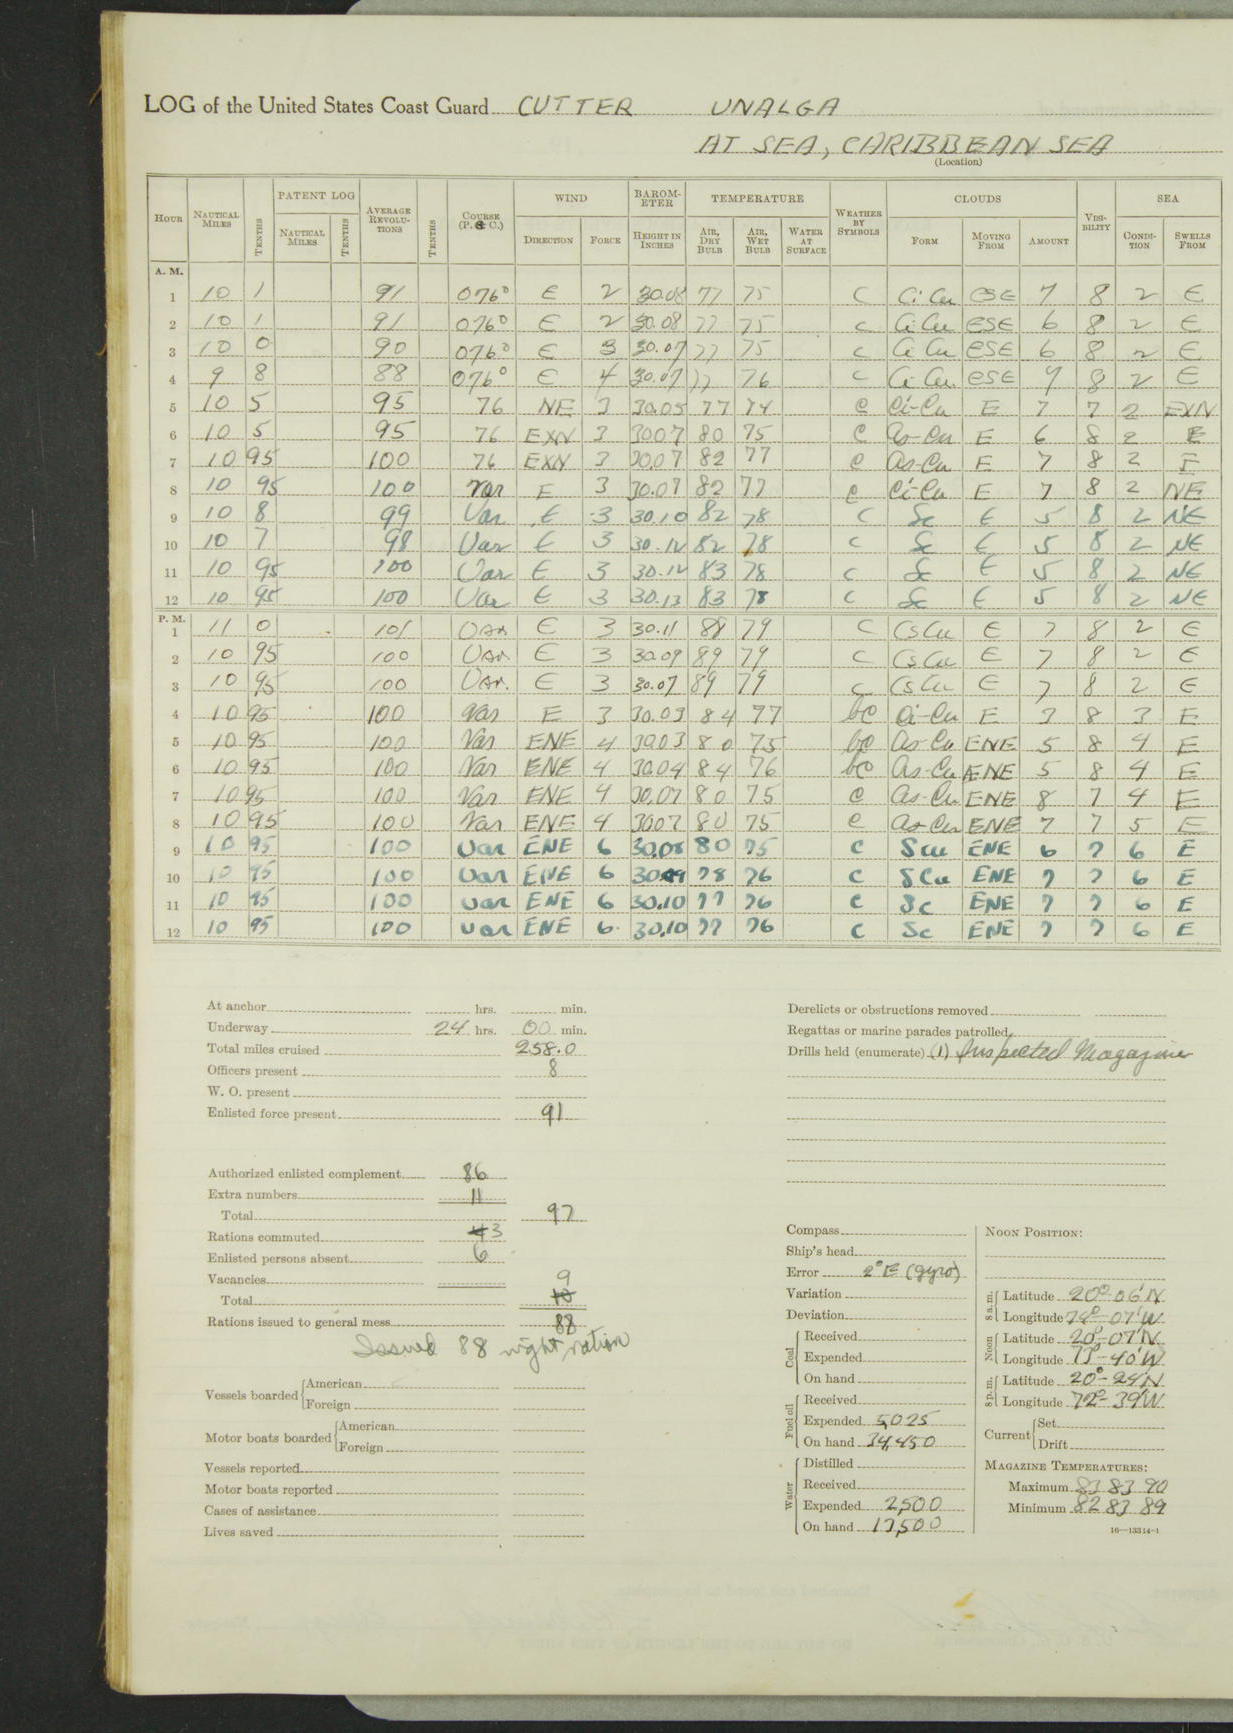 LOG of the United States Coast Guard CUTTER UNALGA
AT SEA, CARIBBEAN SEA
(Location)
HOUR NAUTICAL MILES TENTHS PATENT LOG NAUTICAL MILES TENTHS AVERAGE REVOLUTIONS TENTHS COURSE (P. S. C.) WIND DIRECTION FORCE BAROMETER HEIGHT IN INCHES TEMPERATURE AIR, DRY BULB AIR, WET BULB WATER AT SURFACE WEATHER BY SYMBOLS CLOUDS FORM MOVING FROM AMOUNT VISIBILITY SEA CONDITION SWELLS FROM
A. M.
1 10 1 91 076° E 2 30.08 77 75 C Ci Cu ESE 7 8 2 E
2 10 1 91 076° E 2 30.08 77 75 C Ci Cu ESE 6 8 2 E
3 10 0 90 076° E 3 30.07 77 75 C Ci Cu ESE 6 8 2 E
4 9 8 88 076° E 4 30.07 77 76 C Ci Cu ESE 7 8 2 E
5 10 5 95 76 NE 3 30.05 77 74 C Ci-Cu E 7 7 2 EXN
6 10 5 95 76 EXN 3 3007 80 75 C As-Cu E 6 8 2 E
7 10 95 100 76 EXN 3 30.07 82 77 C As-Cu E 7 8 2 E
8 10 95 100 Var E 3 30.07 82 77 C Ci-Cu E 7 8 2 NE
9 10 8 99 Var E 3 30.10 82 78 C Sc E 5 8 2 NE
10 10 7 98 Var E 3 30.12 82 78 C Sc E 5 8 2 NE
11 10 95 100 Var E 3 30.12 83 78 C Sc E 5 8 2 NE
12 10 95 100 Var E 3 30.13 83 78 C Sc E 5 8 2 NE
P. M.
1 11 0 101 Var E 3 30.11 88 79 C CsCu E 7 8 2 E
2 10 95 100 Var E 3 30.09 89 79 C CsCu E 7 8 2 E
3 10 95 100 Var. E 3 30.07 89 79 C CsCu E 7 8 2 E
4 10 95 100 Var E 3 30.03 84 77 bc Ci-Cu E 3 8 3 E
5 10 95 100 Var ENE 4 30.03 80 75 bc As-Cu ENE 5 8 4 E
6 10 95 100 Var ENE 4 30.04 84 76 bc As-Cu ENE 5 8 4 E
7 10 95 100 Var ENE 4 30.07 80 75 C As-Cu ENE 8 7 4 E
8 10 95 100 Var ENE 4 3007 80 75 C As-Cu ENE 7 7 5 E
9 10 95 100 Var ENE 6 30.08 80 75 C Scu ENE 6 7 6 E
10 10 95 100 Var ENE 6 30.09 78 76 C SCu ENE 7 7 6 E
11 10 95 100 Var ENE 6 30.10 77 76 C Sc ENE 7 7 6 E
12 10 95 100 Var ENE 6 30.10 77 76 C Sc ENE 7 7 6 E
At anchor hrs. min.
Underway 24 hrs. 00 min.
Total miles cruised 258.0
Officers present 8
W. O. present
Enlisted force present 91
Authorized enlisted complement 86
Extra numbers 11
Total 97
Rations commuted 3
Enlisted persons absent 6
Vacancies
Total 9
Rations issued to general mess 88
Issued 88 night ration
Vessels boarded American
Foreign
Motor boats boarded American
Foreign
Vessels reported
Motor boats reported
Cases of assistance
Lives saved
Derelicts or obstructions removed
Regattas or marine parades patrolled
Drills held (enumerate) (1) Inspected Magazines
Compass
Ship's head
Error 2°E (gyro)
Variation
Deviation
Coal Received
Expended
On hand
Fuel oil Received
Expended 5,025
On hand 34,450
Water Distilled
Received
Expended 2,500
On hand 17,500
NOON POSITION:
8 a.m. Latitude 20°-06'N
Longitude 74°-07'W
Noon Latitude 20°-07'N
Longitude 73°-40'W
8 p.m. Latitude 20°-24'N
Longitude 72°-39'W
Current Set
Drift
MAGAZINE TEMPERATURES:
Maximum 83 83 90
Minimum 82 83 89
16—13314-1